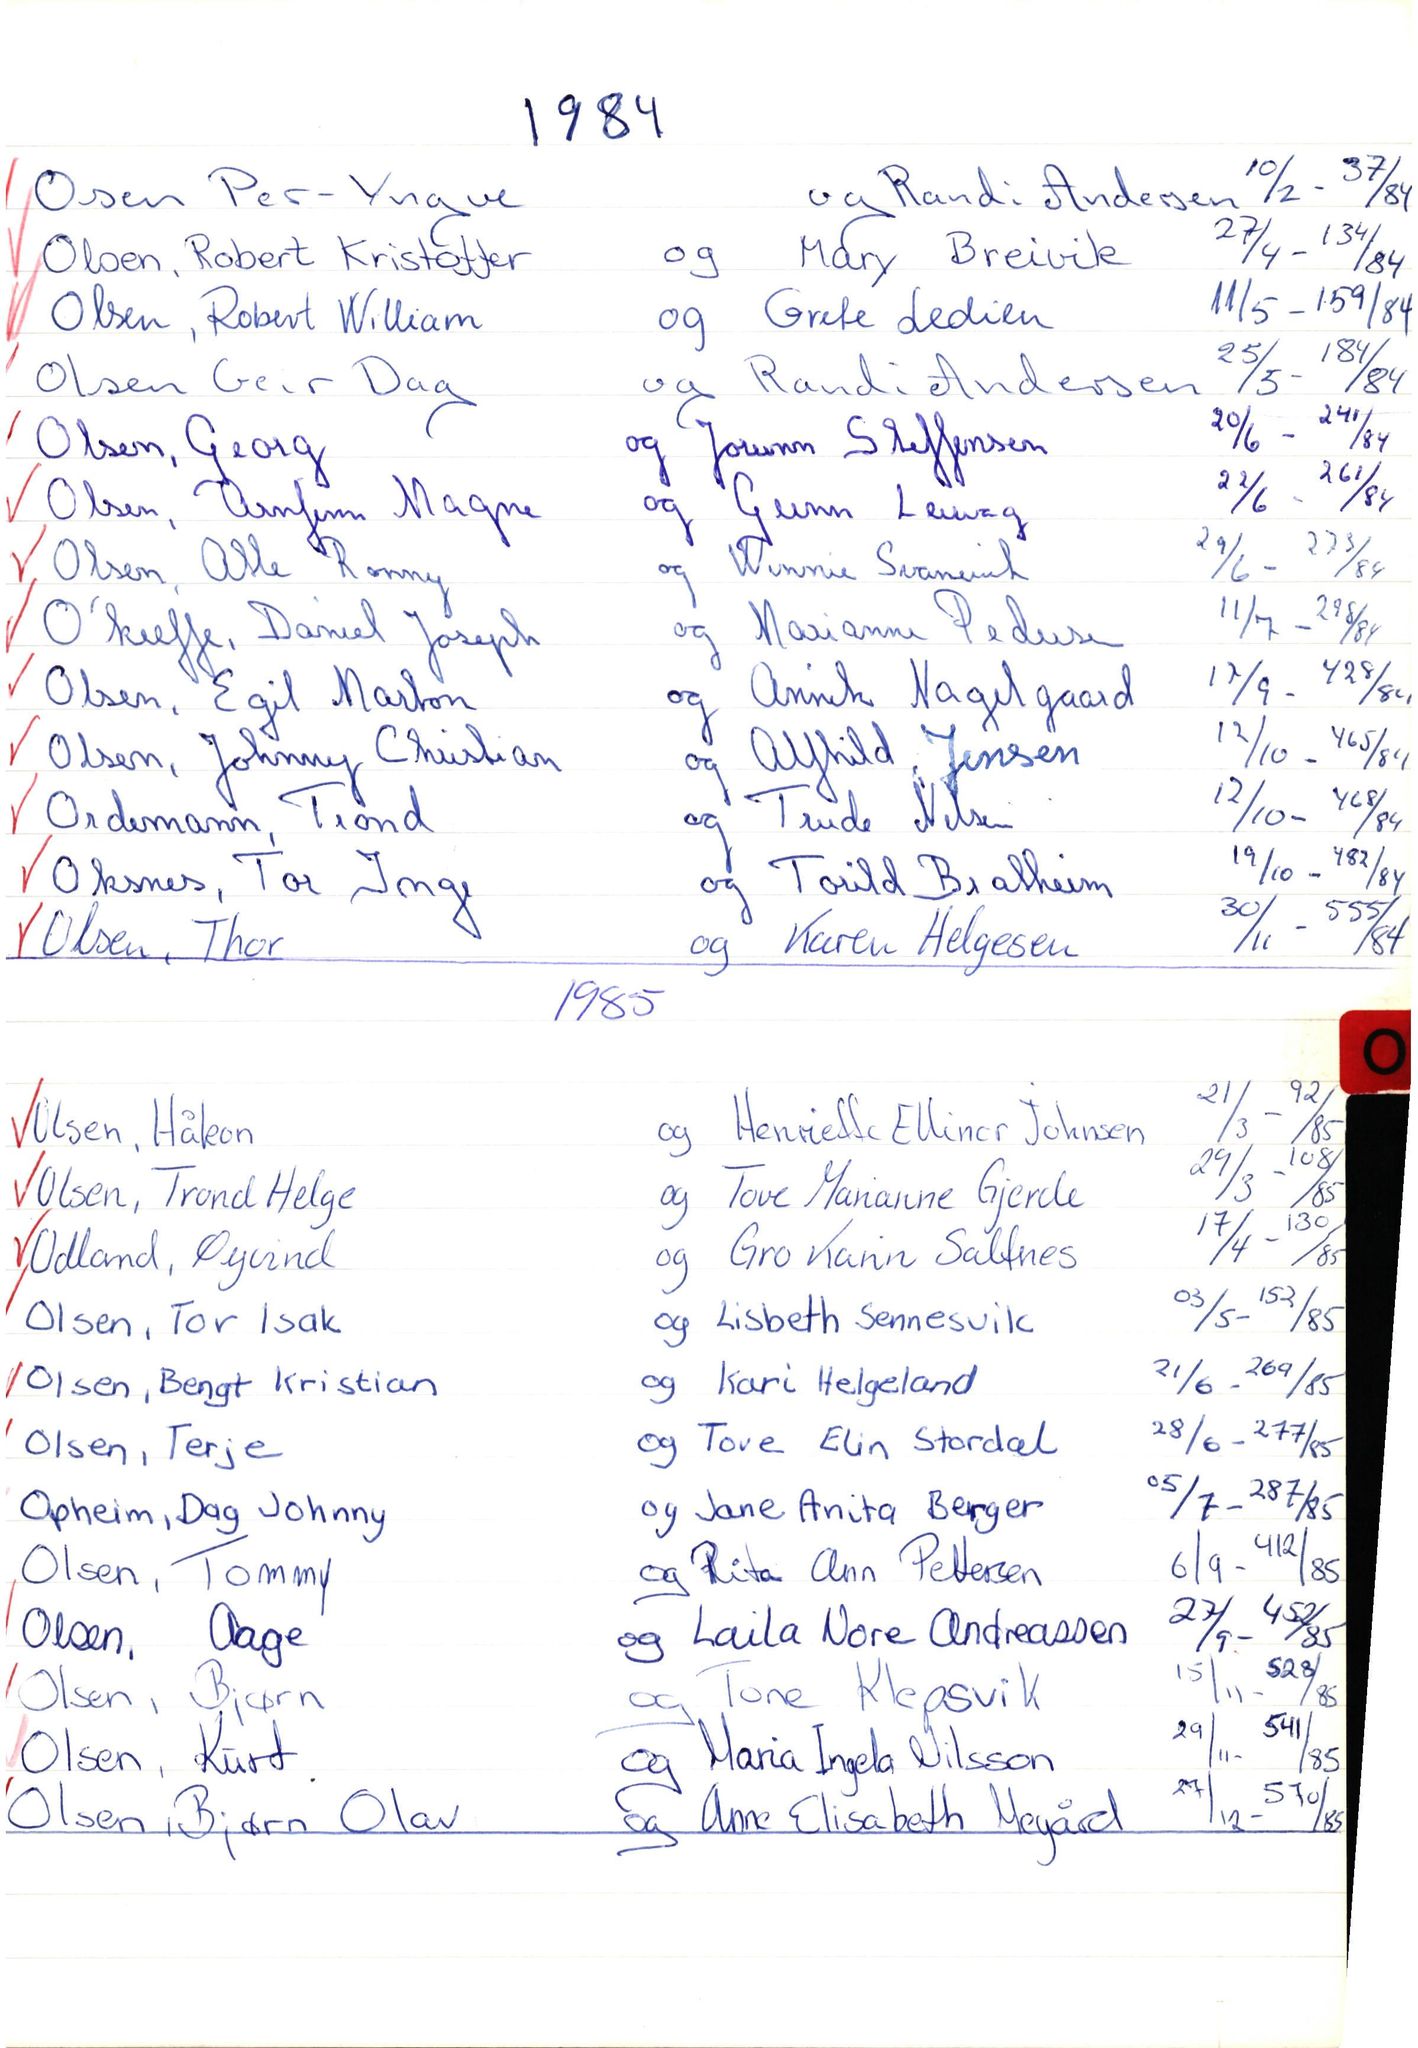 1984
Osen Per-Yngve og Randi Andersen 10/2 - 37/84
Olsen, Robert Kristoffer og Mary Breivik 27/4 - 134/84
Olsen, Robert William og Grete Ledien 11/5 - 159/84
Olsen Geir Dag og Randi Andersen 25/5 - 184/84
Olsen, Georg og Jorunn Steffensen 20/6 - 241/84
Olsen, Arnfinn Magne og Gunn 22/6 - 261/84
Olsen, Atle Ronny og Winnie 29/6 - 273/84
O'keeffe, Daniel Joseph og Marianne Pedersen 11/7 - 298/84
Olsen, Egil Marton og Annik Nagelgaard 17/9 - 428/84
Olsen, Johnny Christian og Alfhild Jensen 12/10 - 465/84
Ordemann, Trond og Trude Nilsen 12/10 - 468/84
Oksnes, Tor Inge og Torild Bratheim 19/10 - 482/84
Olsen, Thor og Karen Helgesen 30/11 - 555/84
1985
O
Olsen, Håkon og Henriette Ellinor Johnsen 21/3 - 92/85
Olsen, Trond Helge og Tove Marianne Gjerde 29/3 - 108/85
Odland, Øyvind og Gro Karin Saltnes 17/4 - 130/85
Olsen, Tor Isak og Lisbeth Sennesvik 03/5 - 152/85
Olsen, Bengt Kristian og Kari Helgeland 21/6 - 269/85
Olsen, Terje og Tove Elin Stordal 28/6 - 277/85
Opheim, Dag Johnny og Jane Anita Berger 05/7 - 287/85
Olsen, Tommy og Rita Ann Pettersen 6/9 - 412/85
Olsen, Aage og Laila Nore Andreassen 27/9 - 452/85
Olsen, Bjørn og Tone Klepsvik 15/11 - 528/85
Olsen, Kurt og Maria Ingela Nilsson 29/11 - 541/85
Olsen, Bjørn Olav og Anne Elisabeth Megård 27/12 - 570/85